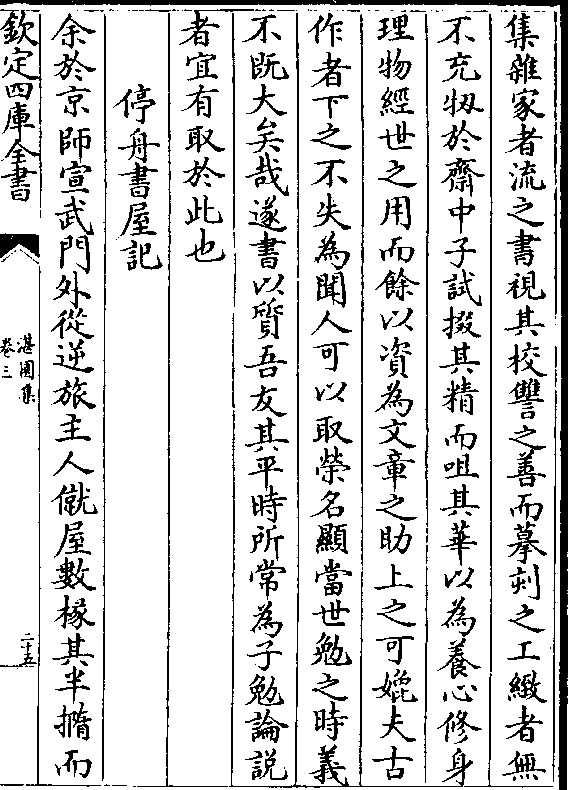 集雜家者流之書視其校讐之善而摹刻之工緻者無
不充牣於齋中子試掇其精而咀其華以為養心修身
理物經世之用而餘以資為文章之助上之可媲夫古
作者下之不失為聞人可以取榮名顯當世勉之時義
不既大矣哉遂書以質吾友其平時所常為子勉論説
者宜有取於此也
停舟書屋記
余於京師宣武門外從逆旅主人僦屋數椽其半撱而
欽定四庫全書
湛園集
卷三
二十五